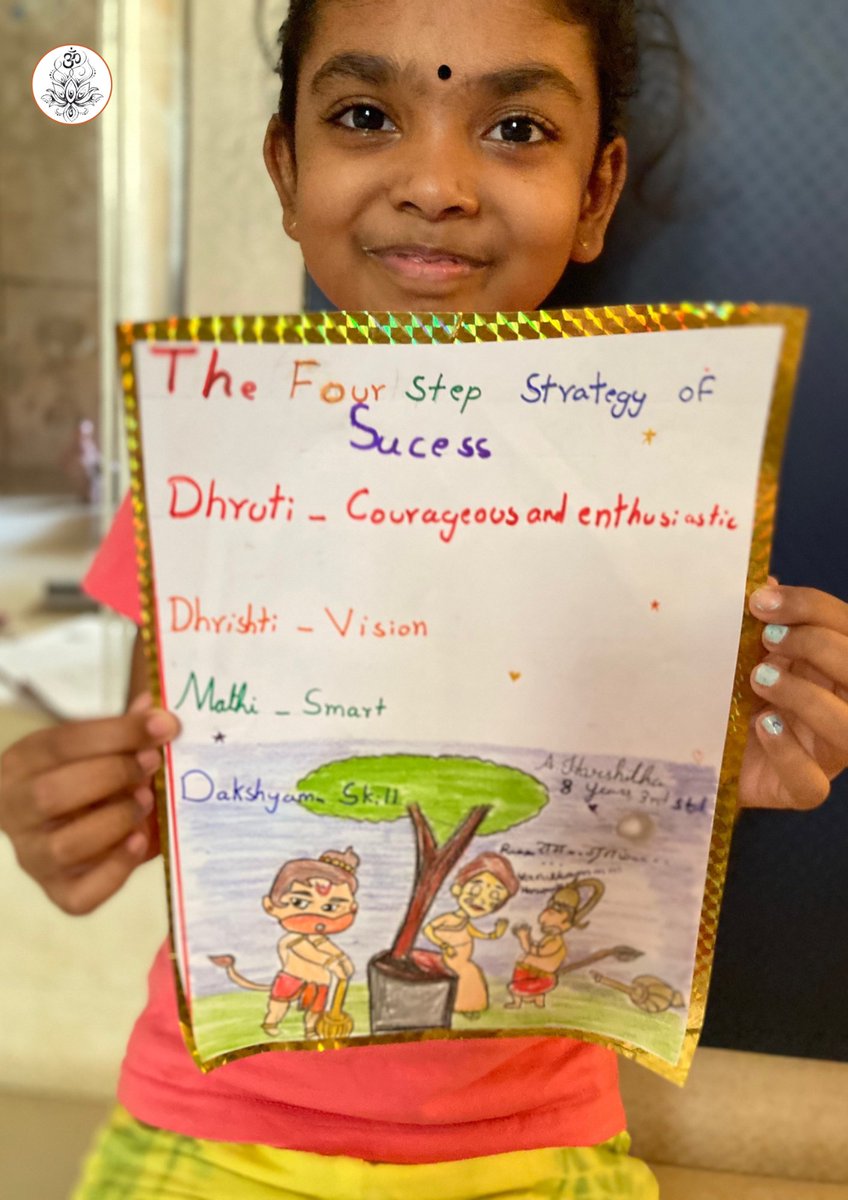 The Four Step Strategy of
Sucess
Dhruti - Courageous and enthusiastic
Dhrishti - Vision
Mathi - Smart
Dakshyam - Skill
A Harshitha
8 Years 3rd std
ॐ